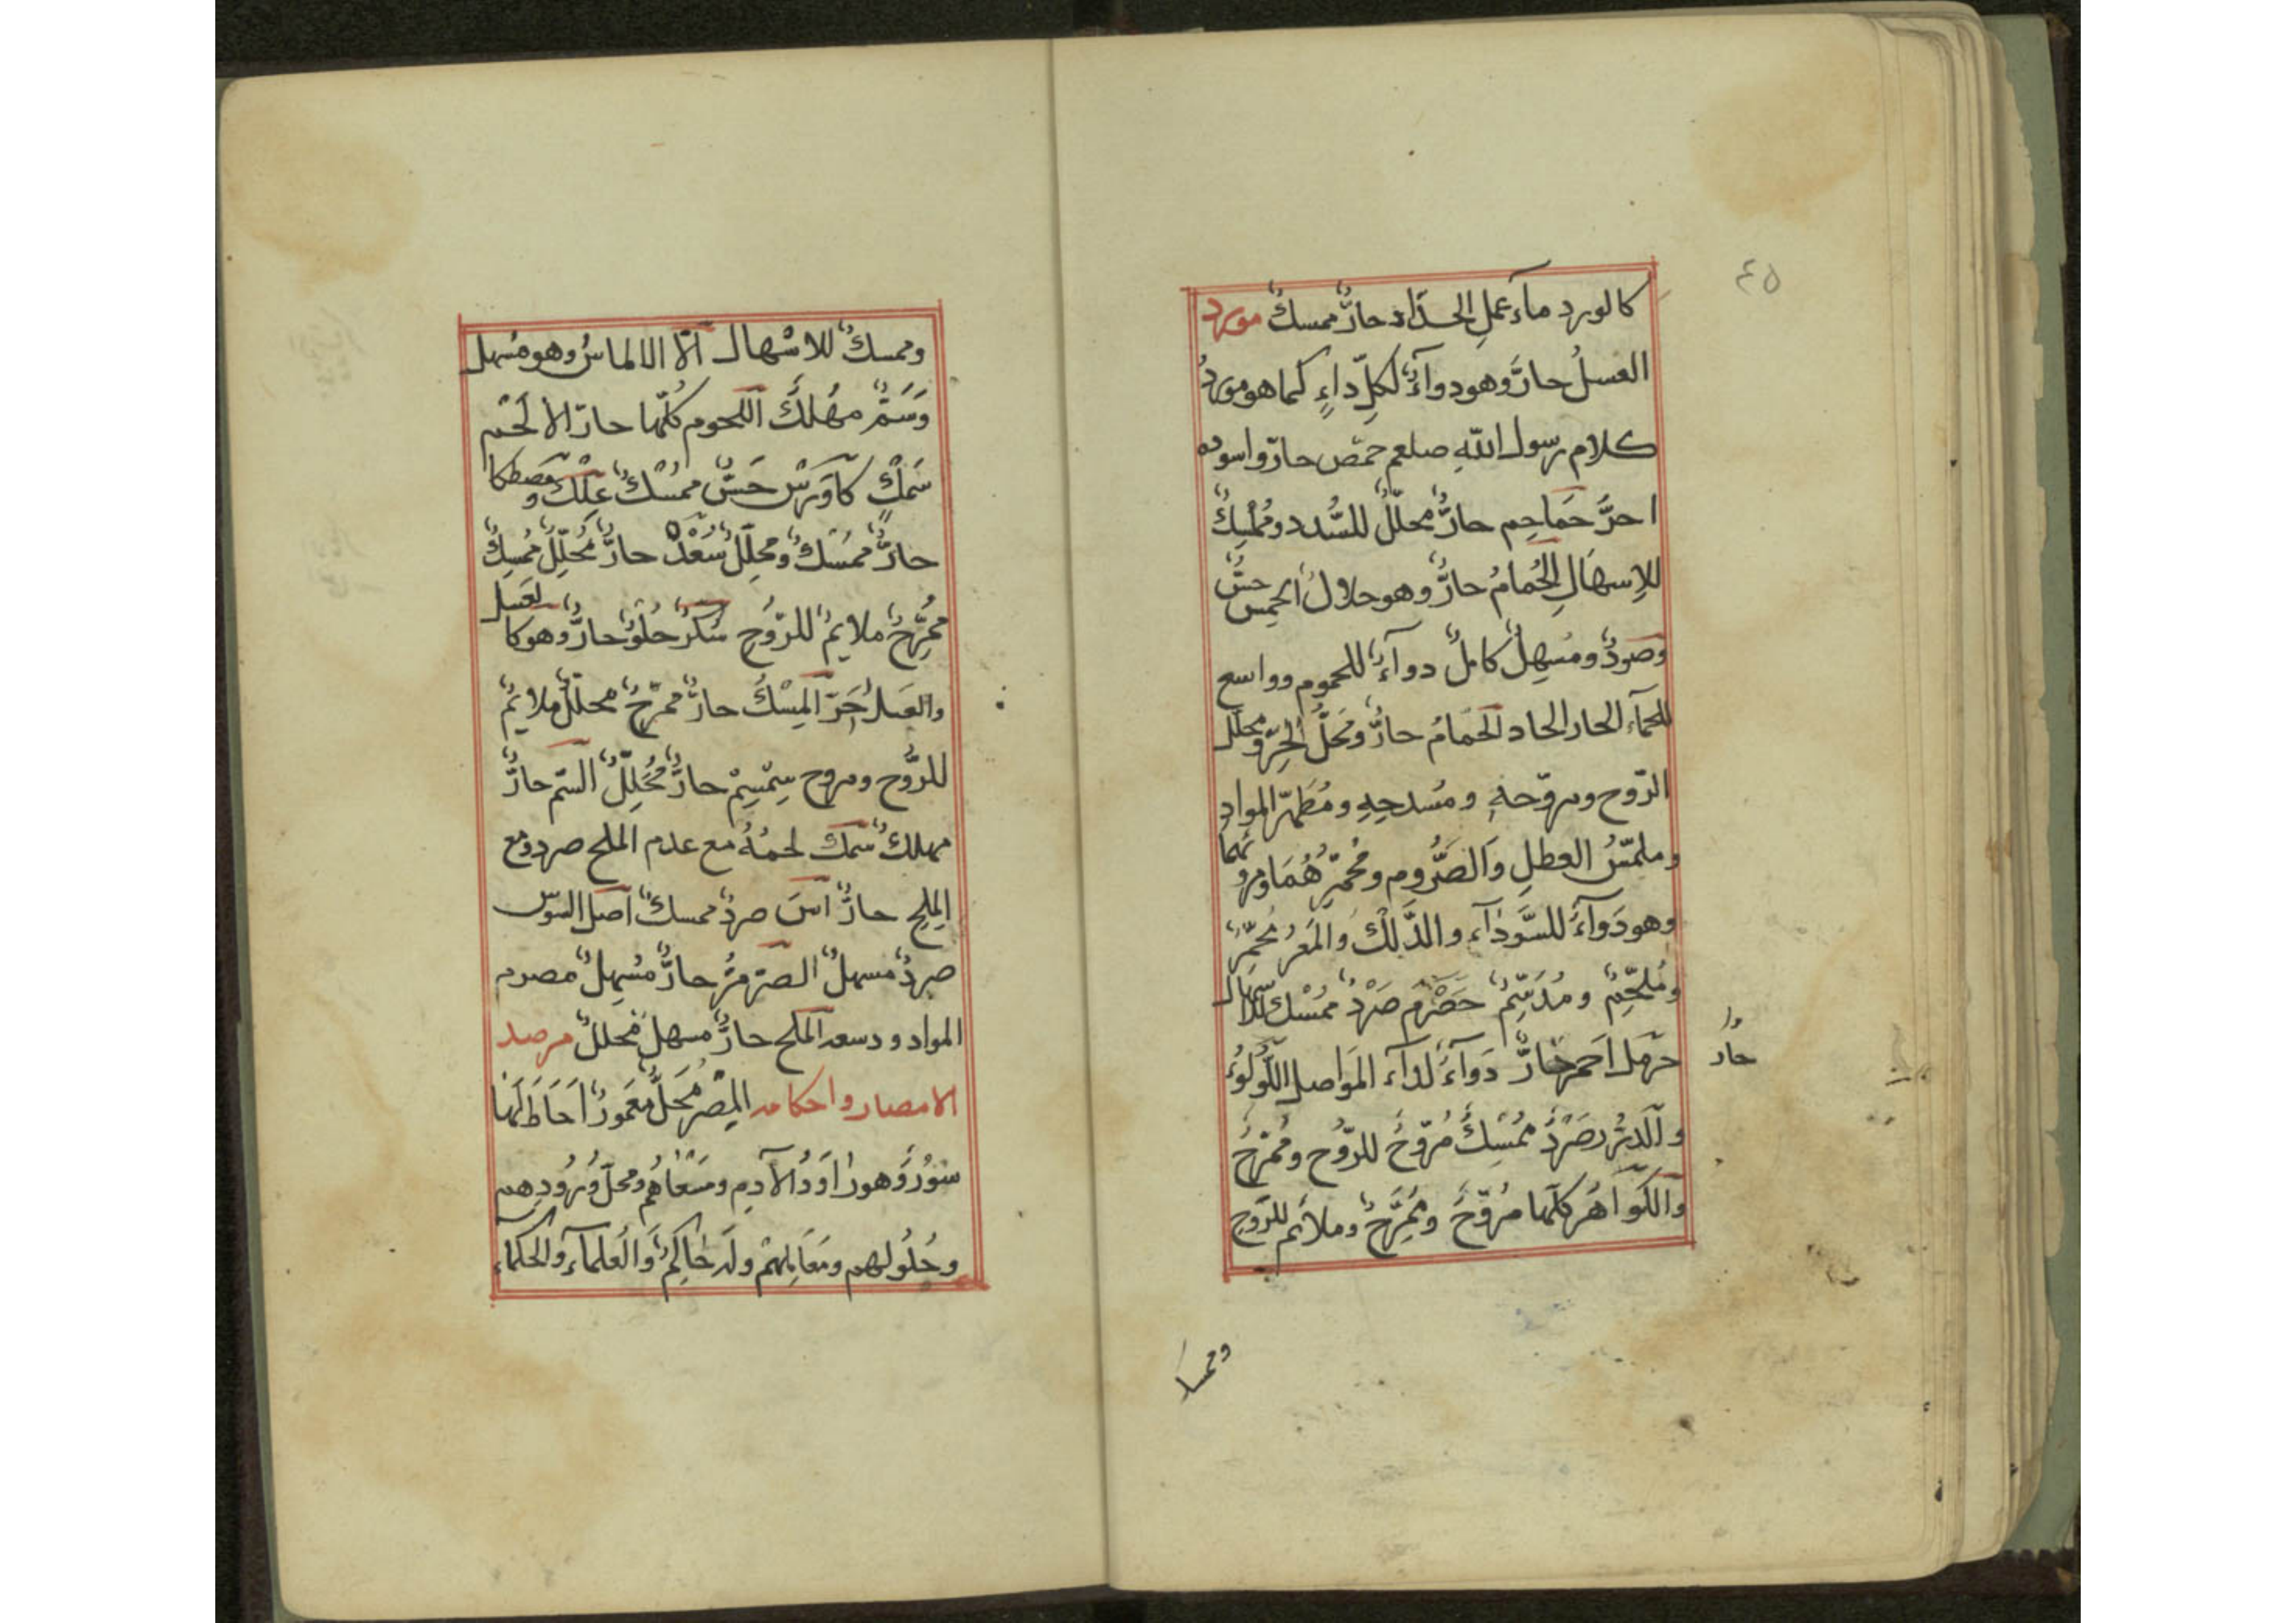 ٤٥
كالورد ماء عمل الحداد حارٌّ ممسكٌ مورد
العسلُ حارٌّ وهو دوآءٌ لكلّ داءٍ كما هو موردُ
كلام رسول اللّٰه صلعم حمّص حارّ واسوده
احرّ حَماحِم حارٌّ محلّلٌ للسُّدد ومُمْسِكٌ
للإسهَالِ الحُمامُ حارٌّ وهو حلالٌ الحِمِّص حسٌّ
وصردٌ ومُسهِلٌ كاملٌ دوآءٌ للحموم وواسع
للحمآء الحار الحاد الحَمّامُ حارٌّ ومُحَلُّ الحِرّ ومحلّل
الرّوح ومروّحهِ ومُسدحِهِ ومُطَهّر المواد
وملمّسُ العطلِ وَالصَّرُومِ ومُحَمِّرُهُمَا ومروّحهما
وهو دَوآءٌ للسَّودآء والدَّلْكُ وَالمَعرُ مُحَمِّرٌ
ومُلحِّمٌ ومُدَسِّمٌ حَصْرَم صَرْدٌ مُمْسكٌ للاسهال
حَرْمل احمر حَارٌّ دَوآءٌ لدآء المَواصل اللّؤلؤُ
حار
والدّرُّ صَرْدٌ مُمْسِكٌ مُروِّحٌ للرّوُح ومُمَرِّحٌ
وَاللّكوآهُر كلّها مُروِّحٌ ومُمَرِّحٌ وملائم للرّوح
وممسك
وممسكٌ للاسْهال الّا الالماسُ وهو مُسهل
وَسَمٌّ مُهْلكٌ اللّحوم كُلّها حارّ الا لَحْم
سَمَكٍ كَاوَرَسْ حَسٌّ ممُسْكٌ عِلْك ومَصطكا
حارٌّ ممُسْكٌ ومحلِّلٌ سُعْدٌ حارٌّ مُحَلِّلٌ مُمسِكٌ
مُمَرِّحٌ ملايمٌ للرّوُح سُكّرٌ حُلْوٌ حارٌّ وهو كالعَسل
والعَسلُ احَرّ المِسْكُ حارٌّ ممَرّحٌ محلّلٌ ملايمٌ
للرُّوح ومروح سِمْسِمْ حارٌّ مُحَلِّلٌ السّم حارٌّ
مهلكٌ سَمَك لحمُهُ مع عدم الملح صرد ومع
المِلحِ حارٌّ آسَ صردٌ ممسكٌ اصل السّوس
صردٌ مسهلٌ الصّرمرُ حارٌّ مُسهِلٌ مصرم
المواد ودسعه الملح حارٌّ مسهلٌ محلّلٌ مرصد
الامصار واحكامه المِصْرُ مَحَلٌّ مَعَمورٌ احَاطَ لَهَا
سُورٌ وهو دآوَدُ الآدم ومَسْعَاهُم ومحلّ وُرُودِهم
وحُلُولهم ومَعَامِلهُمْ ولَه حَاكِمٌ وَالعُلمآء والحكماء